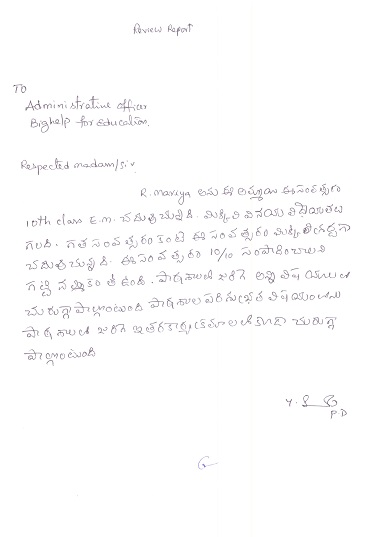 Review Report
TO
Administrative officer
Bighelp for Education.
Respected madam/sir
R. mariya అను ఈ అమ్మాయి ఈ సంవత్సరం
10th class E.m. చదువుచున్నది. మిక్కిలి వినయ విధేయతలు
గలది. గత సంవత్సరం కంటే ఈ సంవత్సరం మిక్కిలి శ్రద్ధగా
చదువుచున్నది. ఈ సంవత్సరం 10/10 సంపాదించాలని
గట్టి నమ్మకంతో ఉంది. పాఠశాలలో జరిగే అన్ని విషయాలలో
చురుగ్గా పాల్గొంటుంది పాఠశాల పరిశుభ్రత విషయంలోను
పాఠశాలలో జరిగే ఇతర కార్యక్రమాలలో కూడా చురుగ్గా
పాల్గొంటుంది
P D